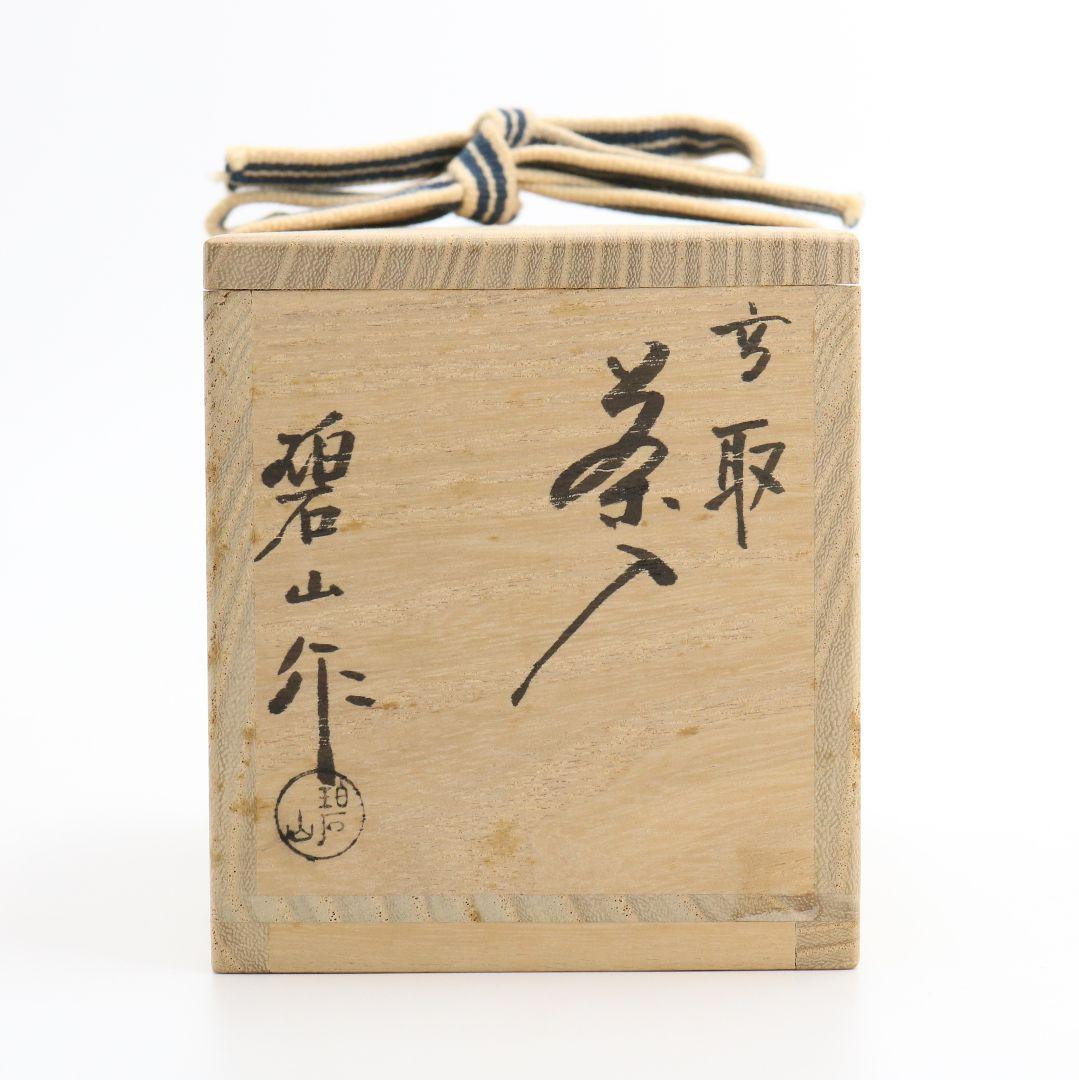 玄取
茶入
碧山作
碧山